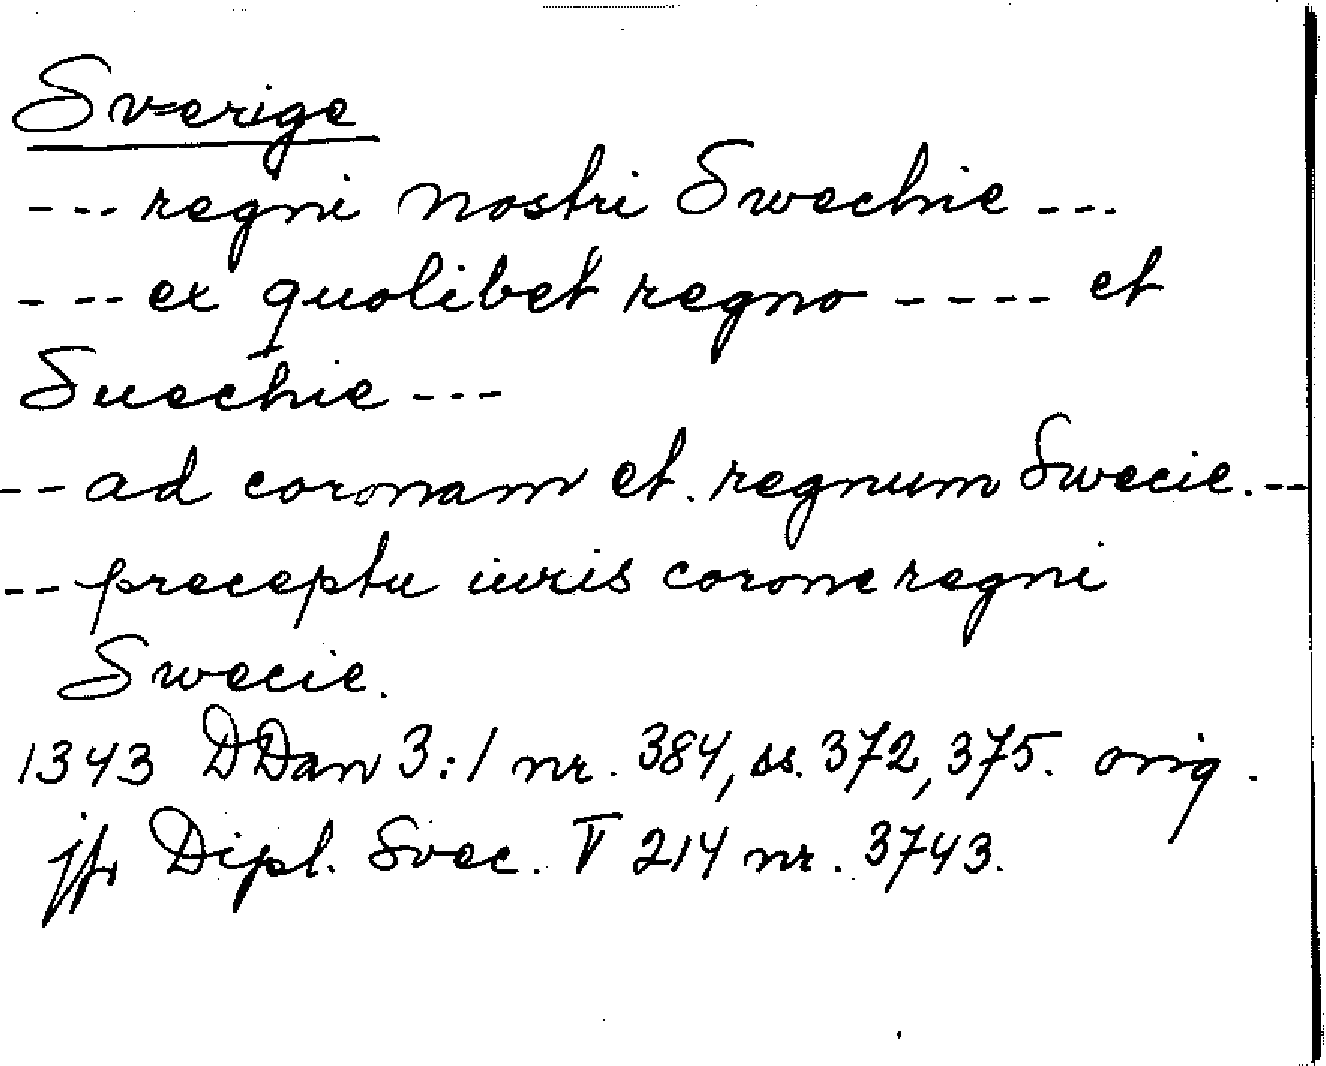 Sverige
--- regni nostri Swechie ---
--- ex quolibet regno ---- et
Suechie ---
-- ad coronam et. regnum Swecie. --
-- preceptu iuris corone regni
Swecie.
1343 DDan 3:1 nr. 384, ss. 372, 375. orig.
jfr Dipl. Svec. V 214 nr. 3743.